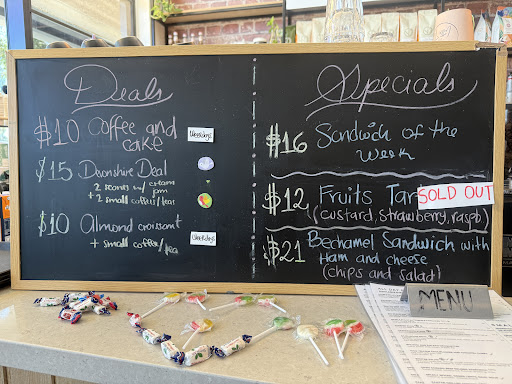 Deals
$10 Coffee and
cake
Weekdays
$15 Devonshire Deal
2 scones w/ cream
+ 2 small coffee/tea
$10 Almond croissant
+ small coffee/tea
Weekdays
Specials
$16 Sandwich of the
week
$12 Fruits Tar
SOLD OUT
(custard, strawberry, raspb)
$21 Bechamel Sandwich with
Ham and cheese
(chips and salad)
MENU